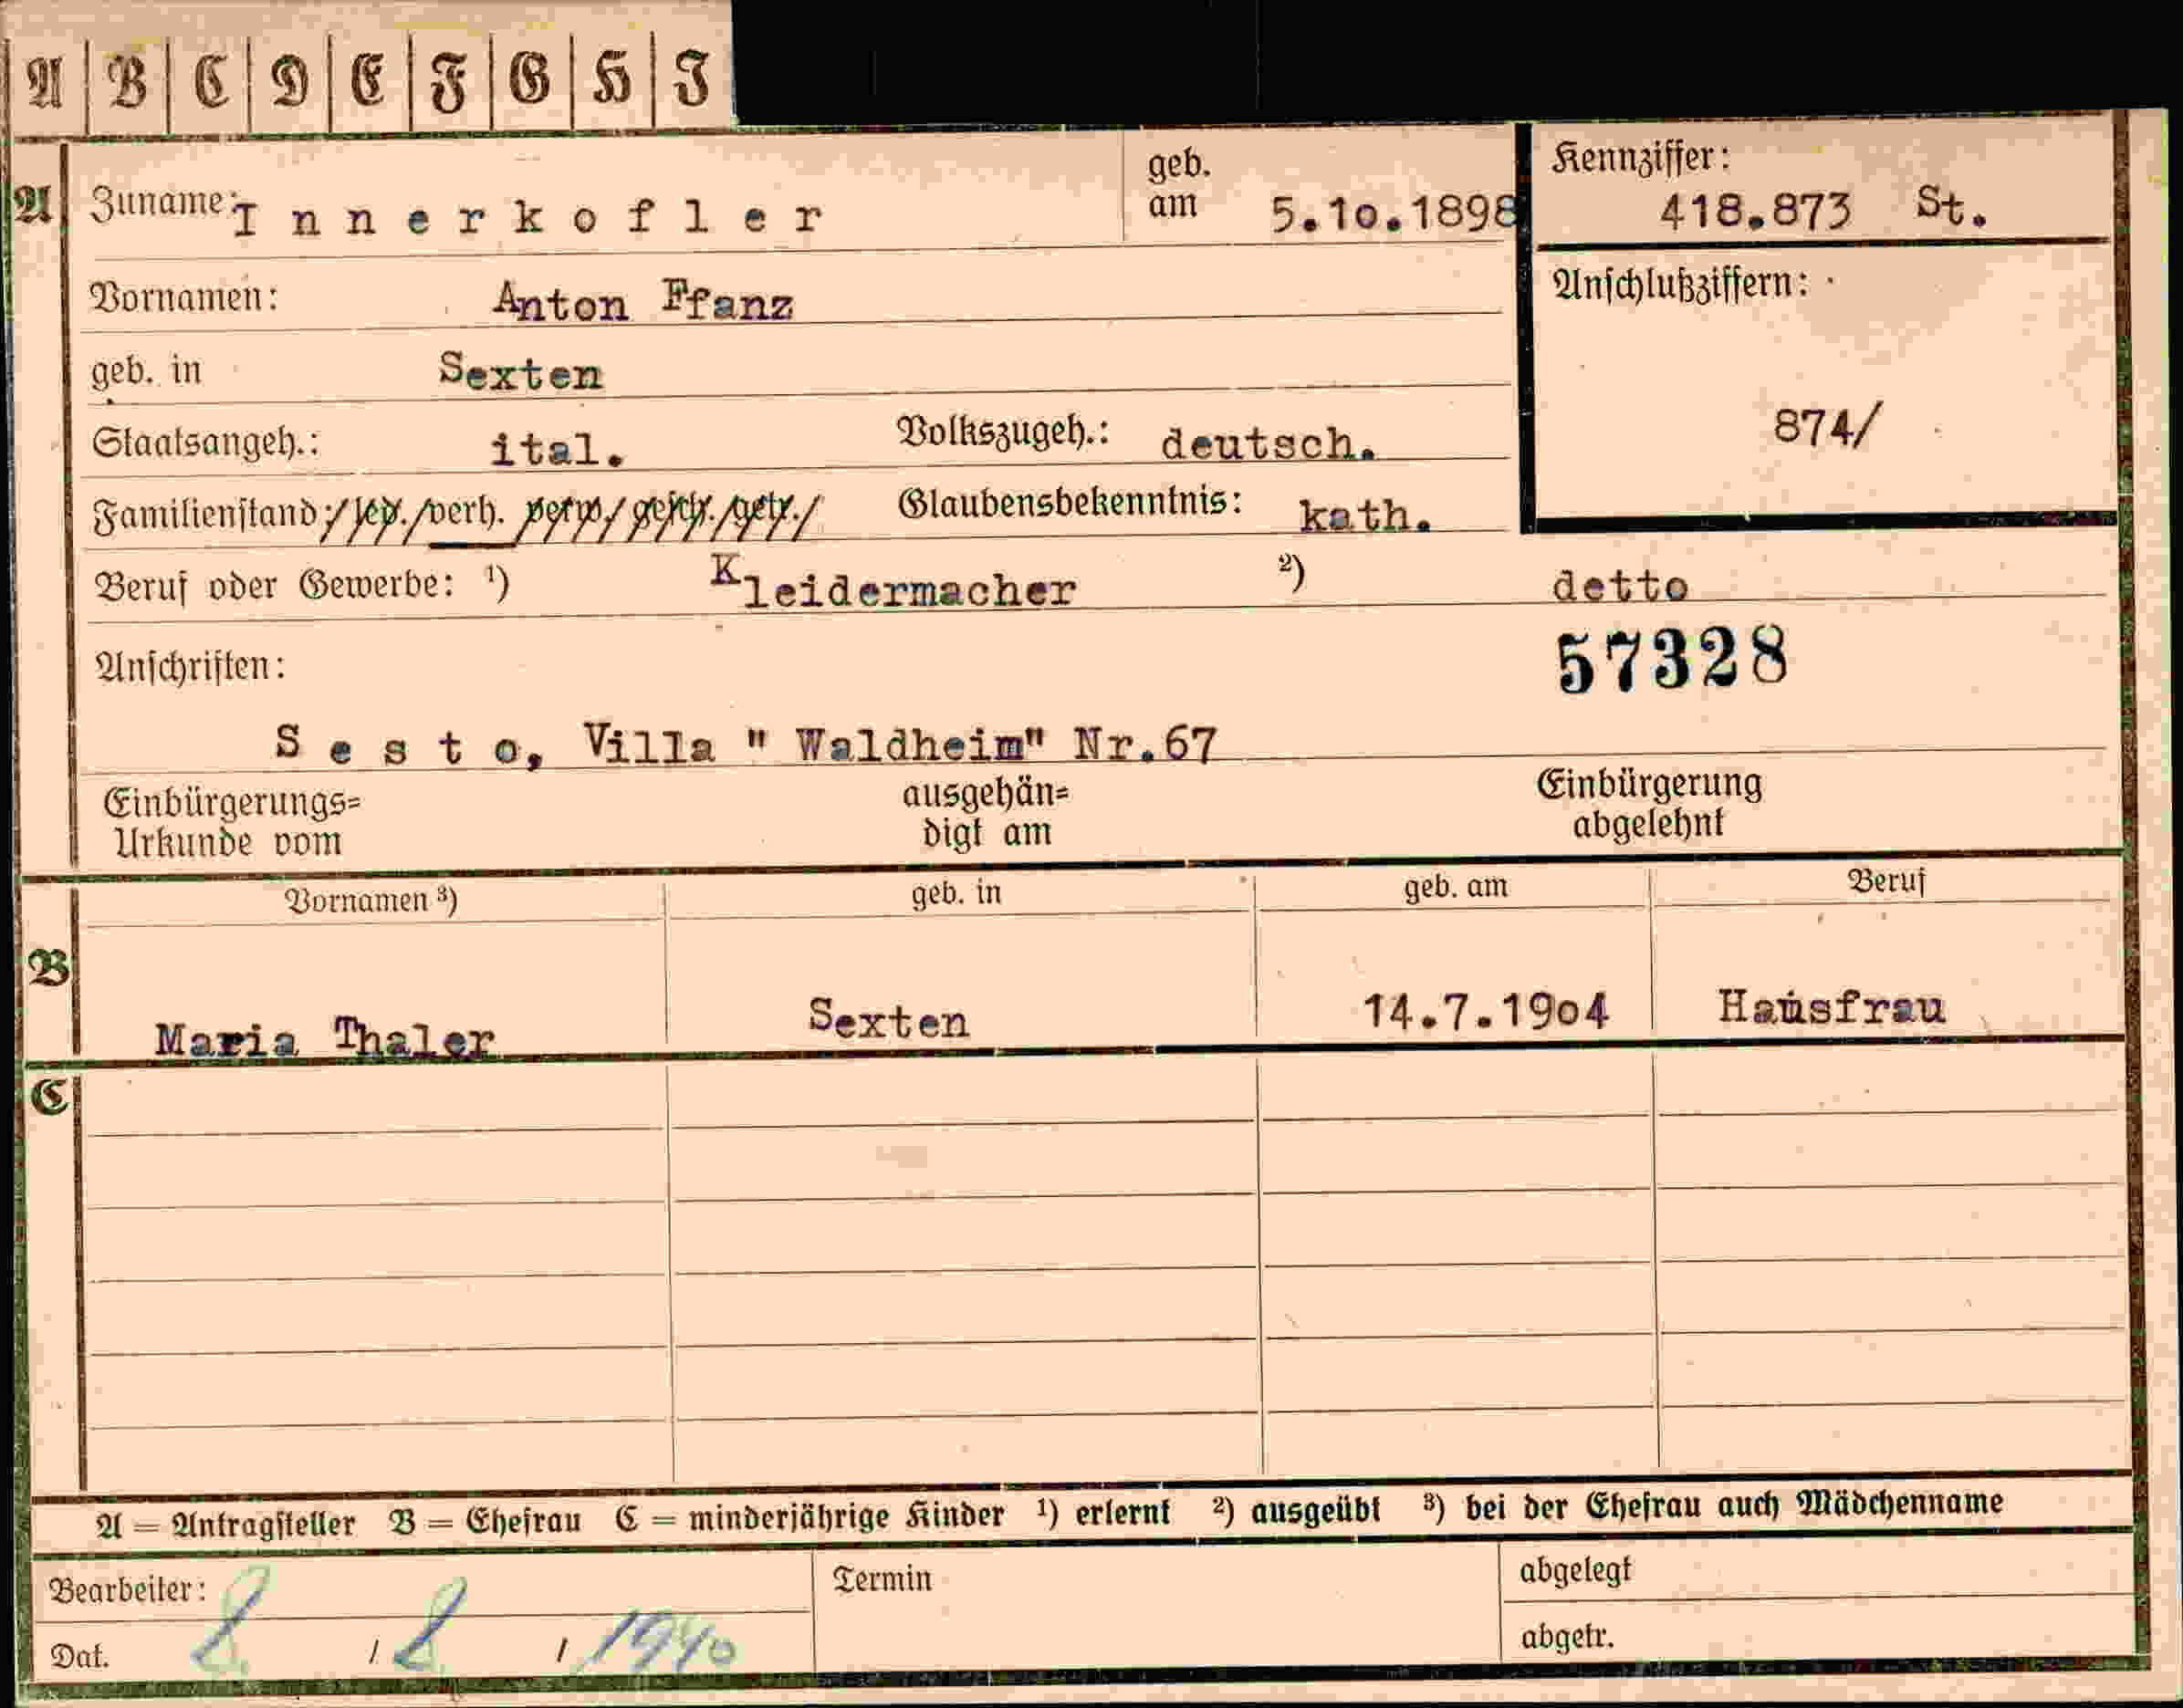 A B C D E F G H I
A Zuname: Innerkofler geb. am 5.10.1898 Kennziffer: 418.873 St.
Vornamen: Anton Ffanz Anschlußziffern:
geb. in Sexten
874/
Staatsangeh.: ital. Volkszugeh.: deutsch.
Familienstand: / led. / verh. verw / gesch. / getr. / Glaubensbekenntnis: kath.
Beruf oder Gewerbe: ¹) Kleidermacher ²) detto
Anschriften: 57328
Sesto, Villa " Waldheim" Nr.67
Einbürgerungs= ausgehän= Einbürgerung
Urkunde vom digt am abgelehnt
Vornamen ³) geb. in geb. am Beruf
B
Maria Thaler Sexten 14.7.1904 Hausfrau
C
A = Antragsteller B = Ehefrau C = minderjährige Kinder ¹) erlernt ²) ausgeübt ³) bei der Ehefrau auch Mädchenname
Bearbeiter: Termin abgelegt
Dat. / / 1940 abgetr.